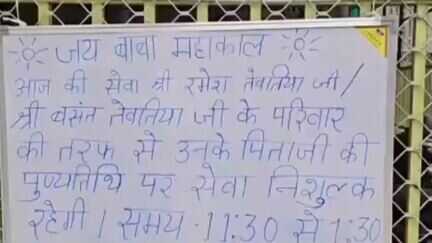 जय बाबा महाकाल
आज की सेवा श्री रमेश तेवतिया जी /
श्री बसंत तेवतिया जी के परिवार
की तरफ से उनके पिताजी की
पुण्यतिथि पर सेवा निशुल्क
रहेगी । समय - 11:30 से 1:30